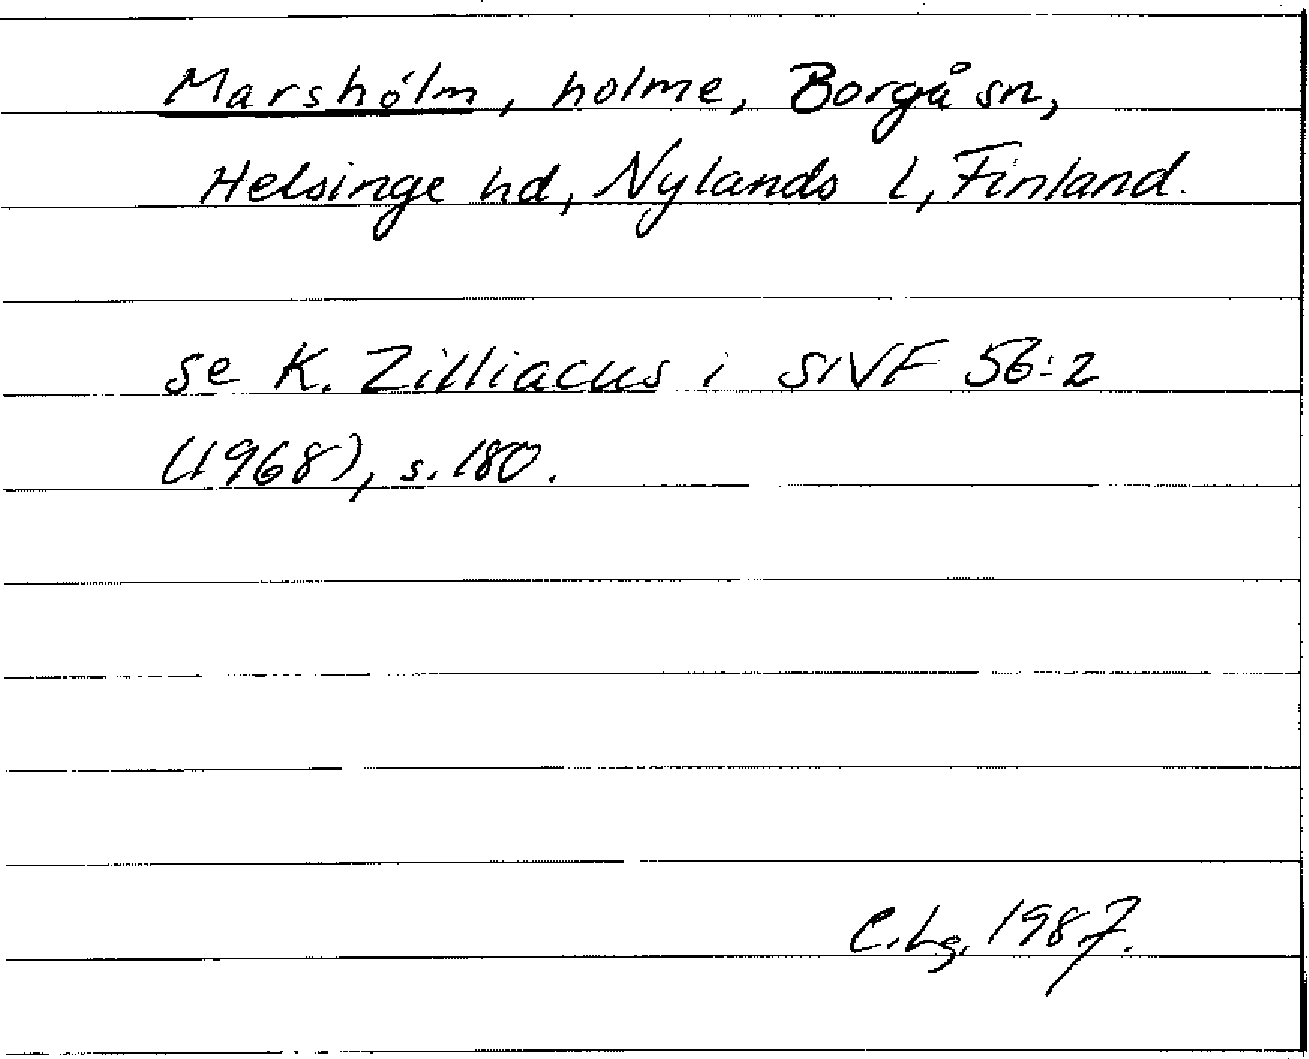 Marshólm, holme, Borgå sn,
Helsinge hd, Nylands l, Finland.
se K. Zilliacus i SNVF 56:2
(1968), s. 180.
C.Lg. 1987.